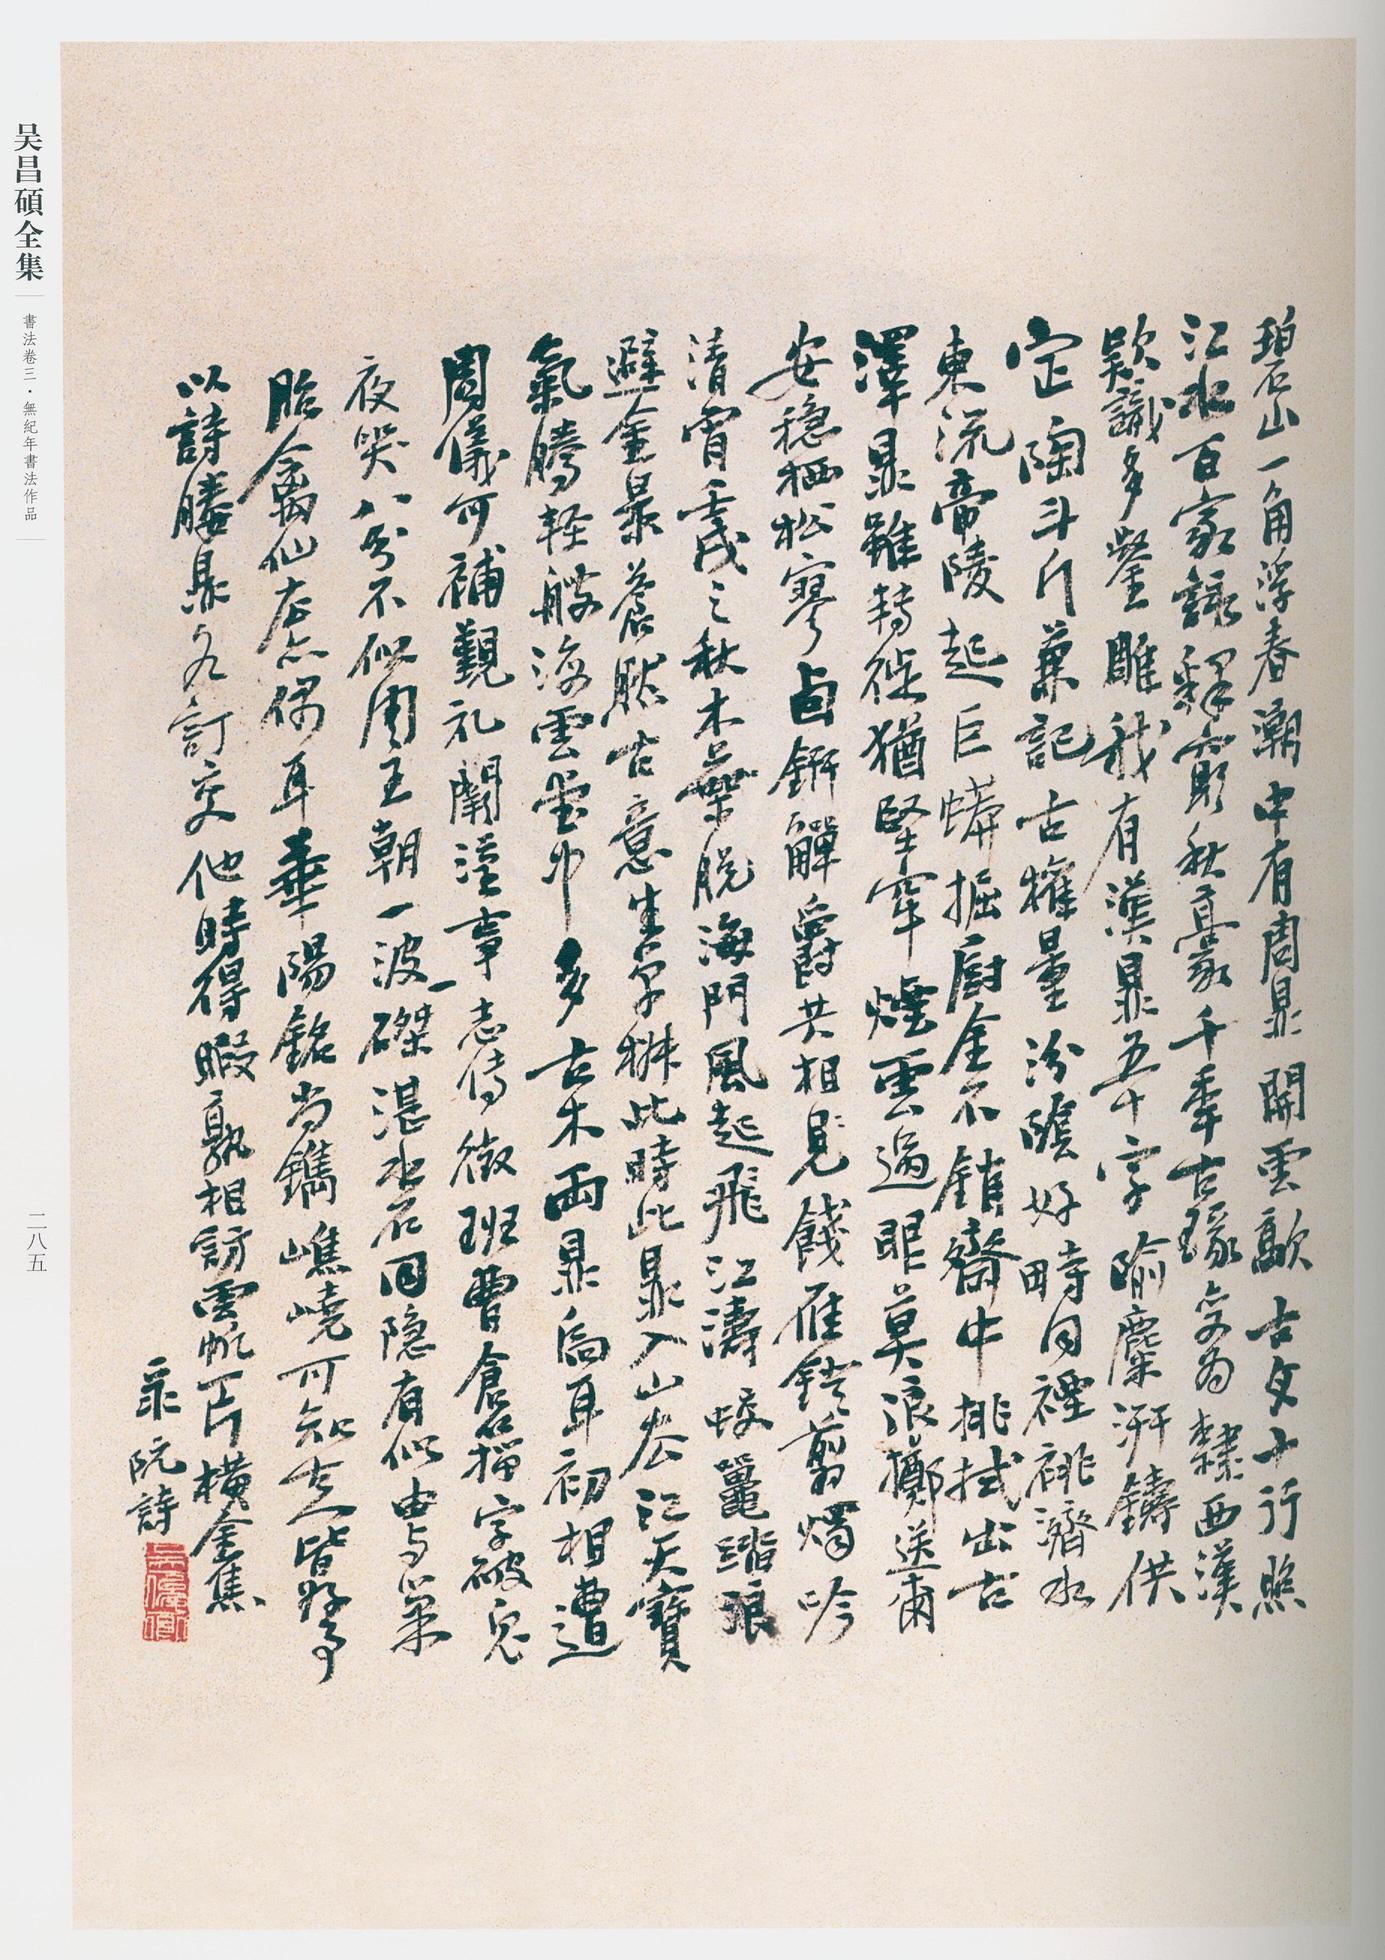 碧山一角浮春潮中有周鼎開雲歊古文十行照
江水百家詠釋窮秋毫千年古琭變為隸西漢
款識多鑿雕我有漢鼎五十字隃麋汧鑄供
定陶斗斤蓋記古權量汾陰好畤同裡祧濟水
東流帝陵起巨蟒掘廚金不銷齋中挑拭出古
澤鼎雖轉徙猶堅牢煙雲過眼莫浪擲送爾
安穩栖松寥卣鈃觶爵共相見餞雁鐙翦燭吟
清宵壬戌之秋木葉脱海門風起飛江濤蛟鼉踏浪
避金景蒼然古意生岸椒此時此鼎入山去江天寶
氣騰輕艘海雲堂中多古木兩鼎焉耳初相遭
周儀可補觀礼闕漢事志傳徵班曹倉石摧字破鬼
夜哭八分不似周王朝一波一磔湛水石同隱有似由与巢
胎禽仙去亦偶耳華陽銘尚鐫嶕嶢可知古人皆好事
以詩媵鼎久訂交他時得暇孰相訪雲帆一片橫金焦
录阮詩
吴昌碩全集
書法卷三·無紀年書法作品
二八五